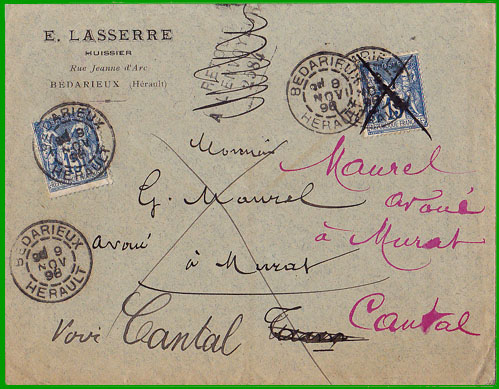 E. LASSERRE
HUISSIER
Rue Jeanne d'Arc
BÉDARIEUX (Hérault)
BEDARIEUX
9
NOV
96
HERAULT
15
BEDARIEUX
9
NOV
96
HERAULT
15
BEDARIEUX
9
NOV
96
HERAULT
Monsieur
G. Maurel
avoué
à Murat
Cantal
Maurel
avoué
à Murat
Cantal